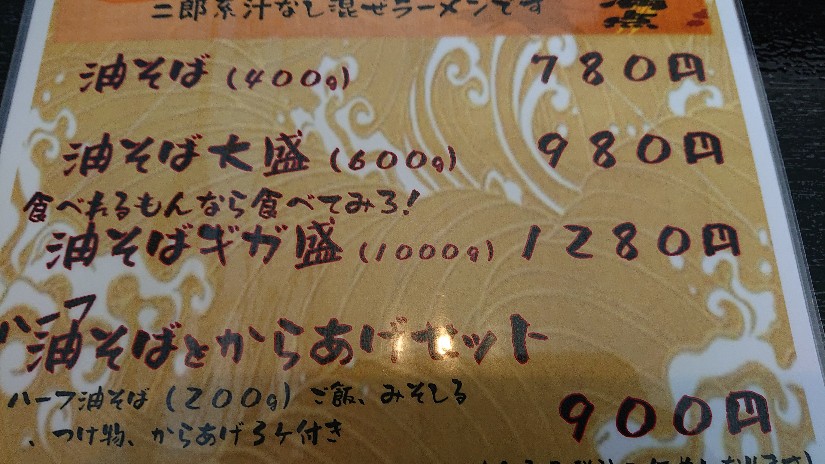 二郎系汁なし混ぜラーメンです
油そば(400g) 780円
油そば大盛(600g) 980円
食べれるもんなら食べてみろ!
油そばギガ盛(1000g) 1280円
ハーフ
油そばとからあげセット
ハーフ油そば(200g)ご飯、みそしる
、つけ物、からあげ3ケ付き
900円